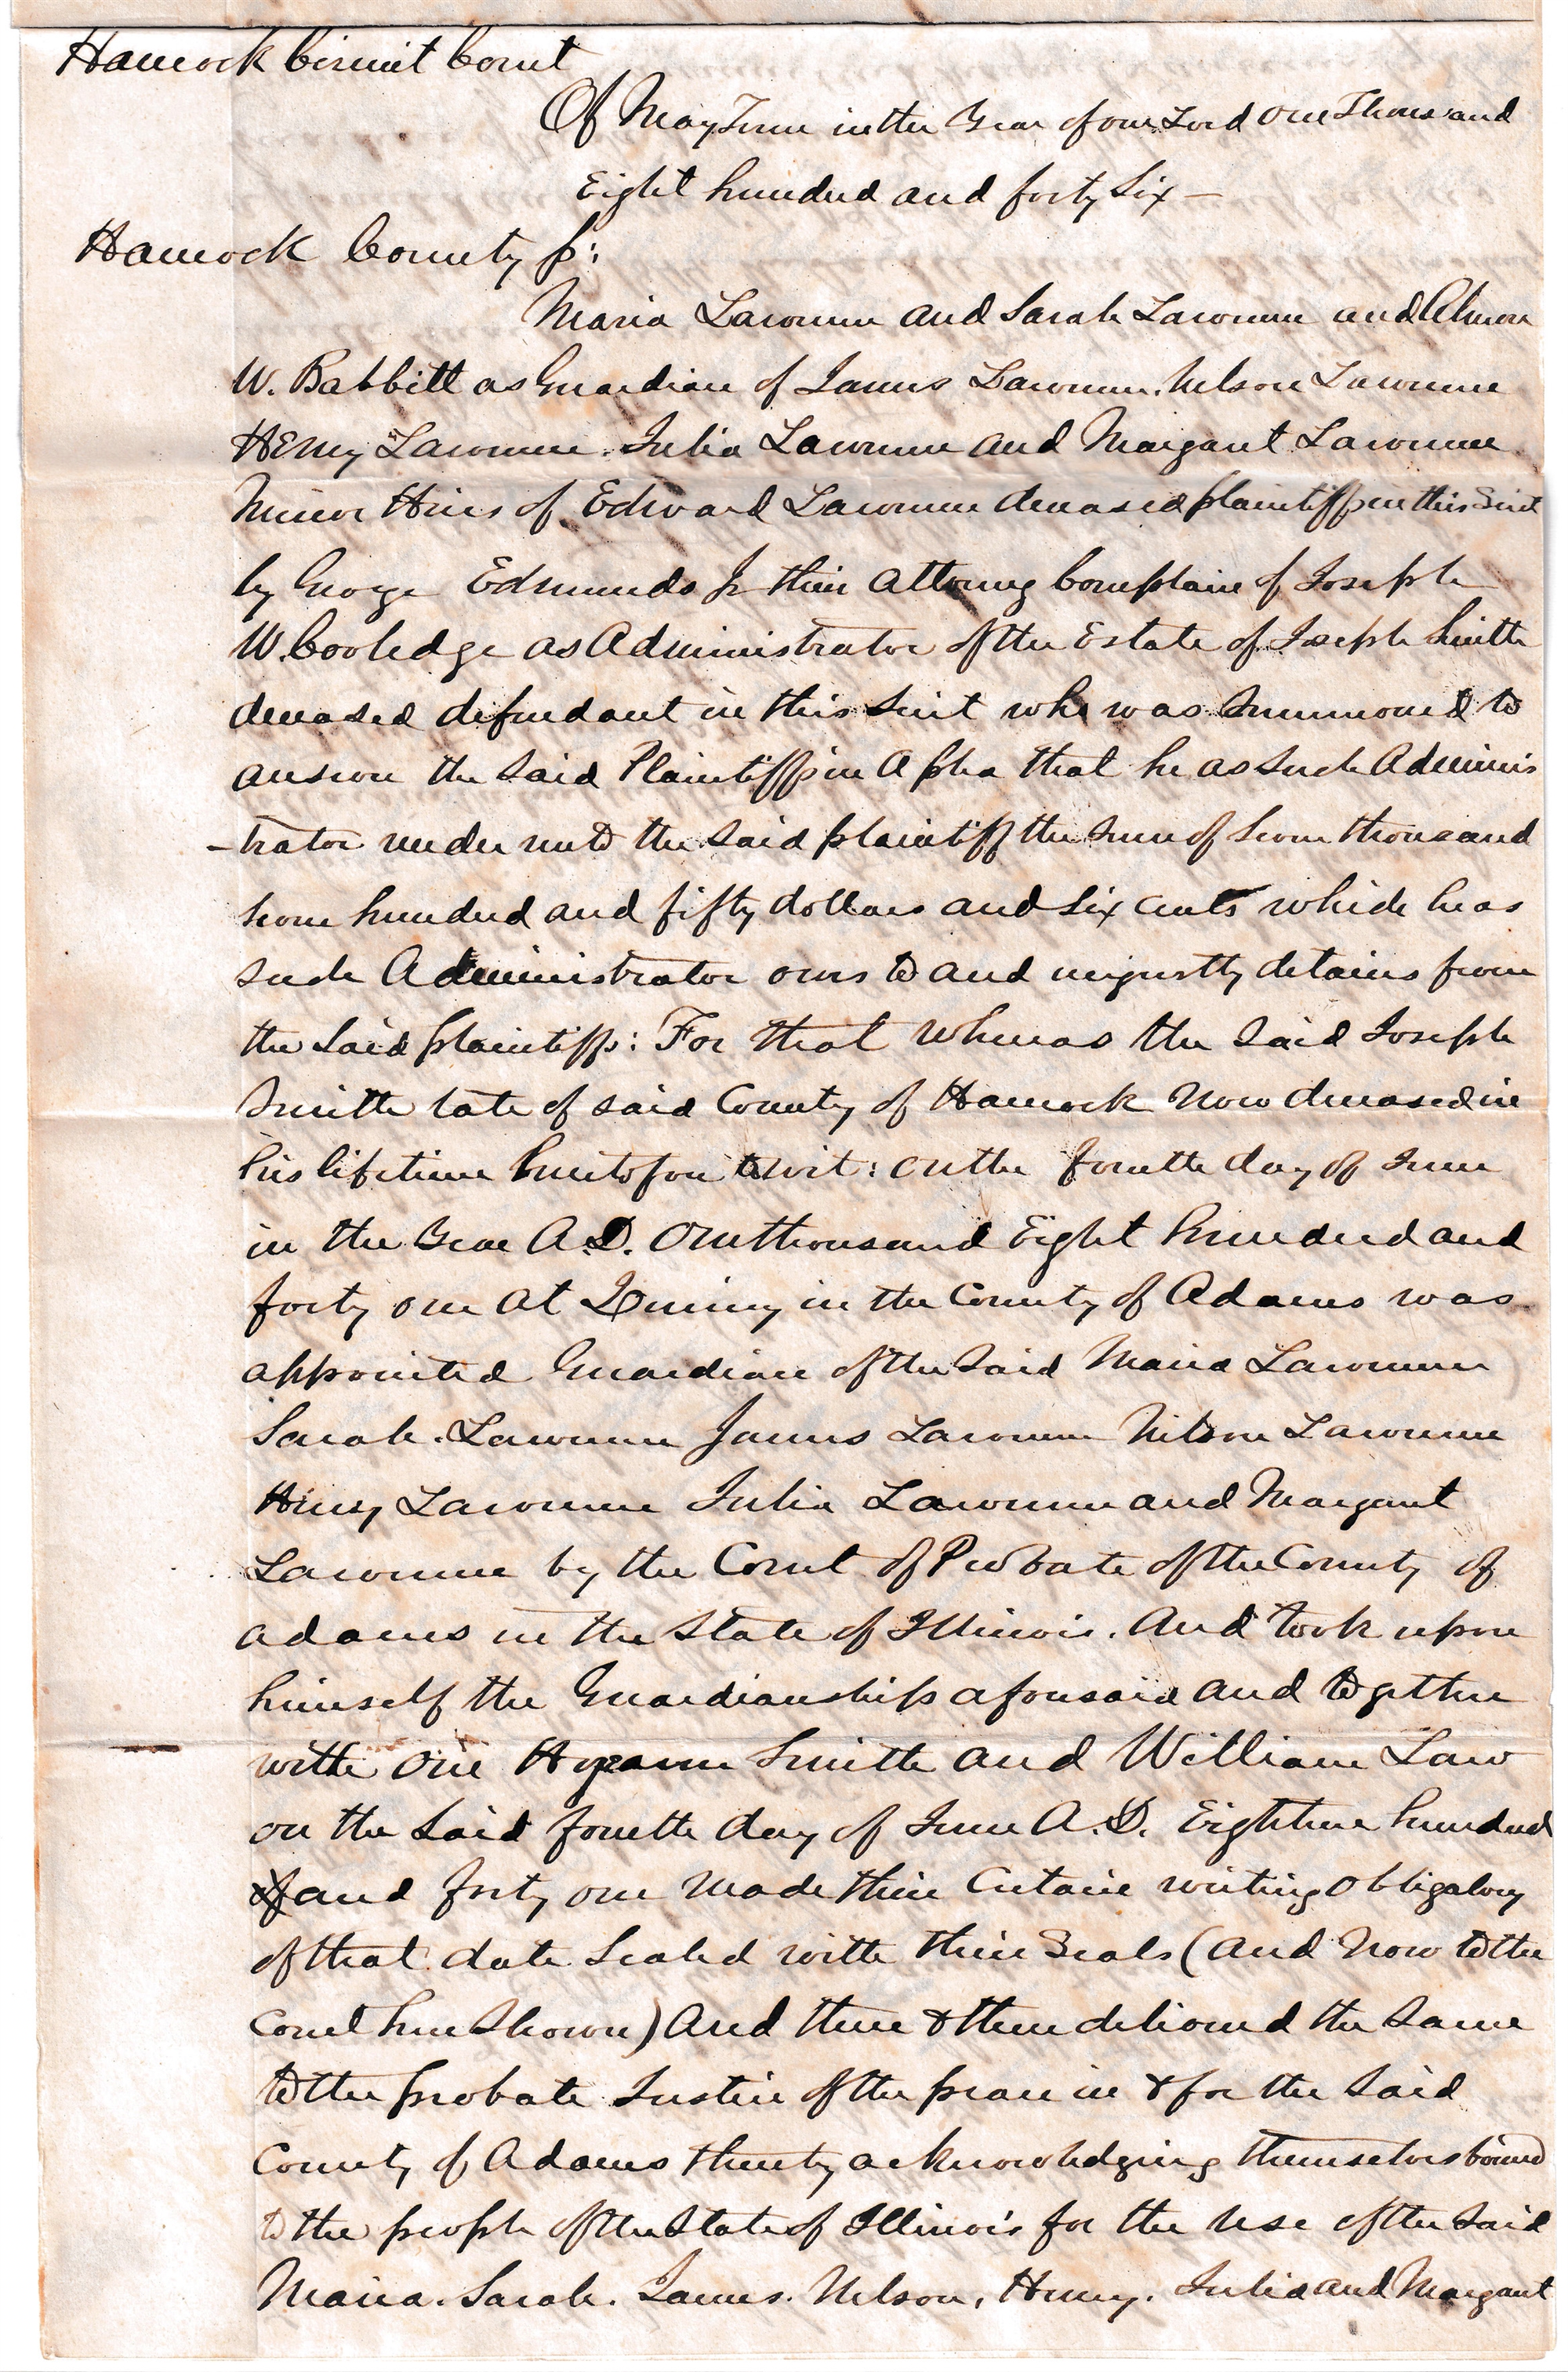 Hancock Circuit Court
Of May Term in the Year of our Lord One Thousand
Eight hundred and forty Six —
Hancock County ss:
Maria Lawrence and Sarah Lawrence and Almon
W. Babbitt as Guardian of James Lawrence. Nelson Lawrence
Henry Lawrence. Julia Lawrence and Margaret Lawrence
Minor Heirs of Edward Lawrence deceased plaintiffs in this Suit
by George Edmunds Jr their Attorney Complain of Joseph
W. Coolidge as Administrator of the Estate of Joseph Smith
deceased defendant in this Suit who was Summoned to
answer the Said Plaintiffs in A plea that he as Such Adminis
-trator render unto the Said plaintiff the Sum of Seven thousand
Seven hundred and fifty dollars and Six cents which he as
such Administrator owes to and unjustly detains from
the Said plaintiffs: For that whereas the Said Joseph
Smith late of said County of Hancock Now deceased in
his lifetime heretofore to wit: On the fourth day of June
in the Year A.D. One thousand Eight hundred and
forty one At Quincy in the County of Adams was
appointed Guardian of the Said Maria Lawrence
Sarah. Lawrence James Lawrence Nelson Lawrence
Henry Lawrence Julia Lawrence and Margaret
Lawrence by the Court of Probate of the County of
Adams in the State of Illinois. And took upon
himself the Guardianship aforesaid and together
with One Hyrum Smith and William Law
on the Said fourth day of June A.D. Eighteen hundred
and forty one Made their Certain writing Obligatory
of that date Sealed with their Seals (And Now to the
Court here Shown) And there & then delivered the Same
to the probate Justice of the peace in & for the Said
County of Adams thereby acknowledging themselves bound
to the people of the State of Illinois for the Use of the Said
Maria. Sarah. James. Nelson, Henry. Julia and Margaret